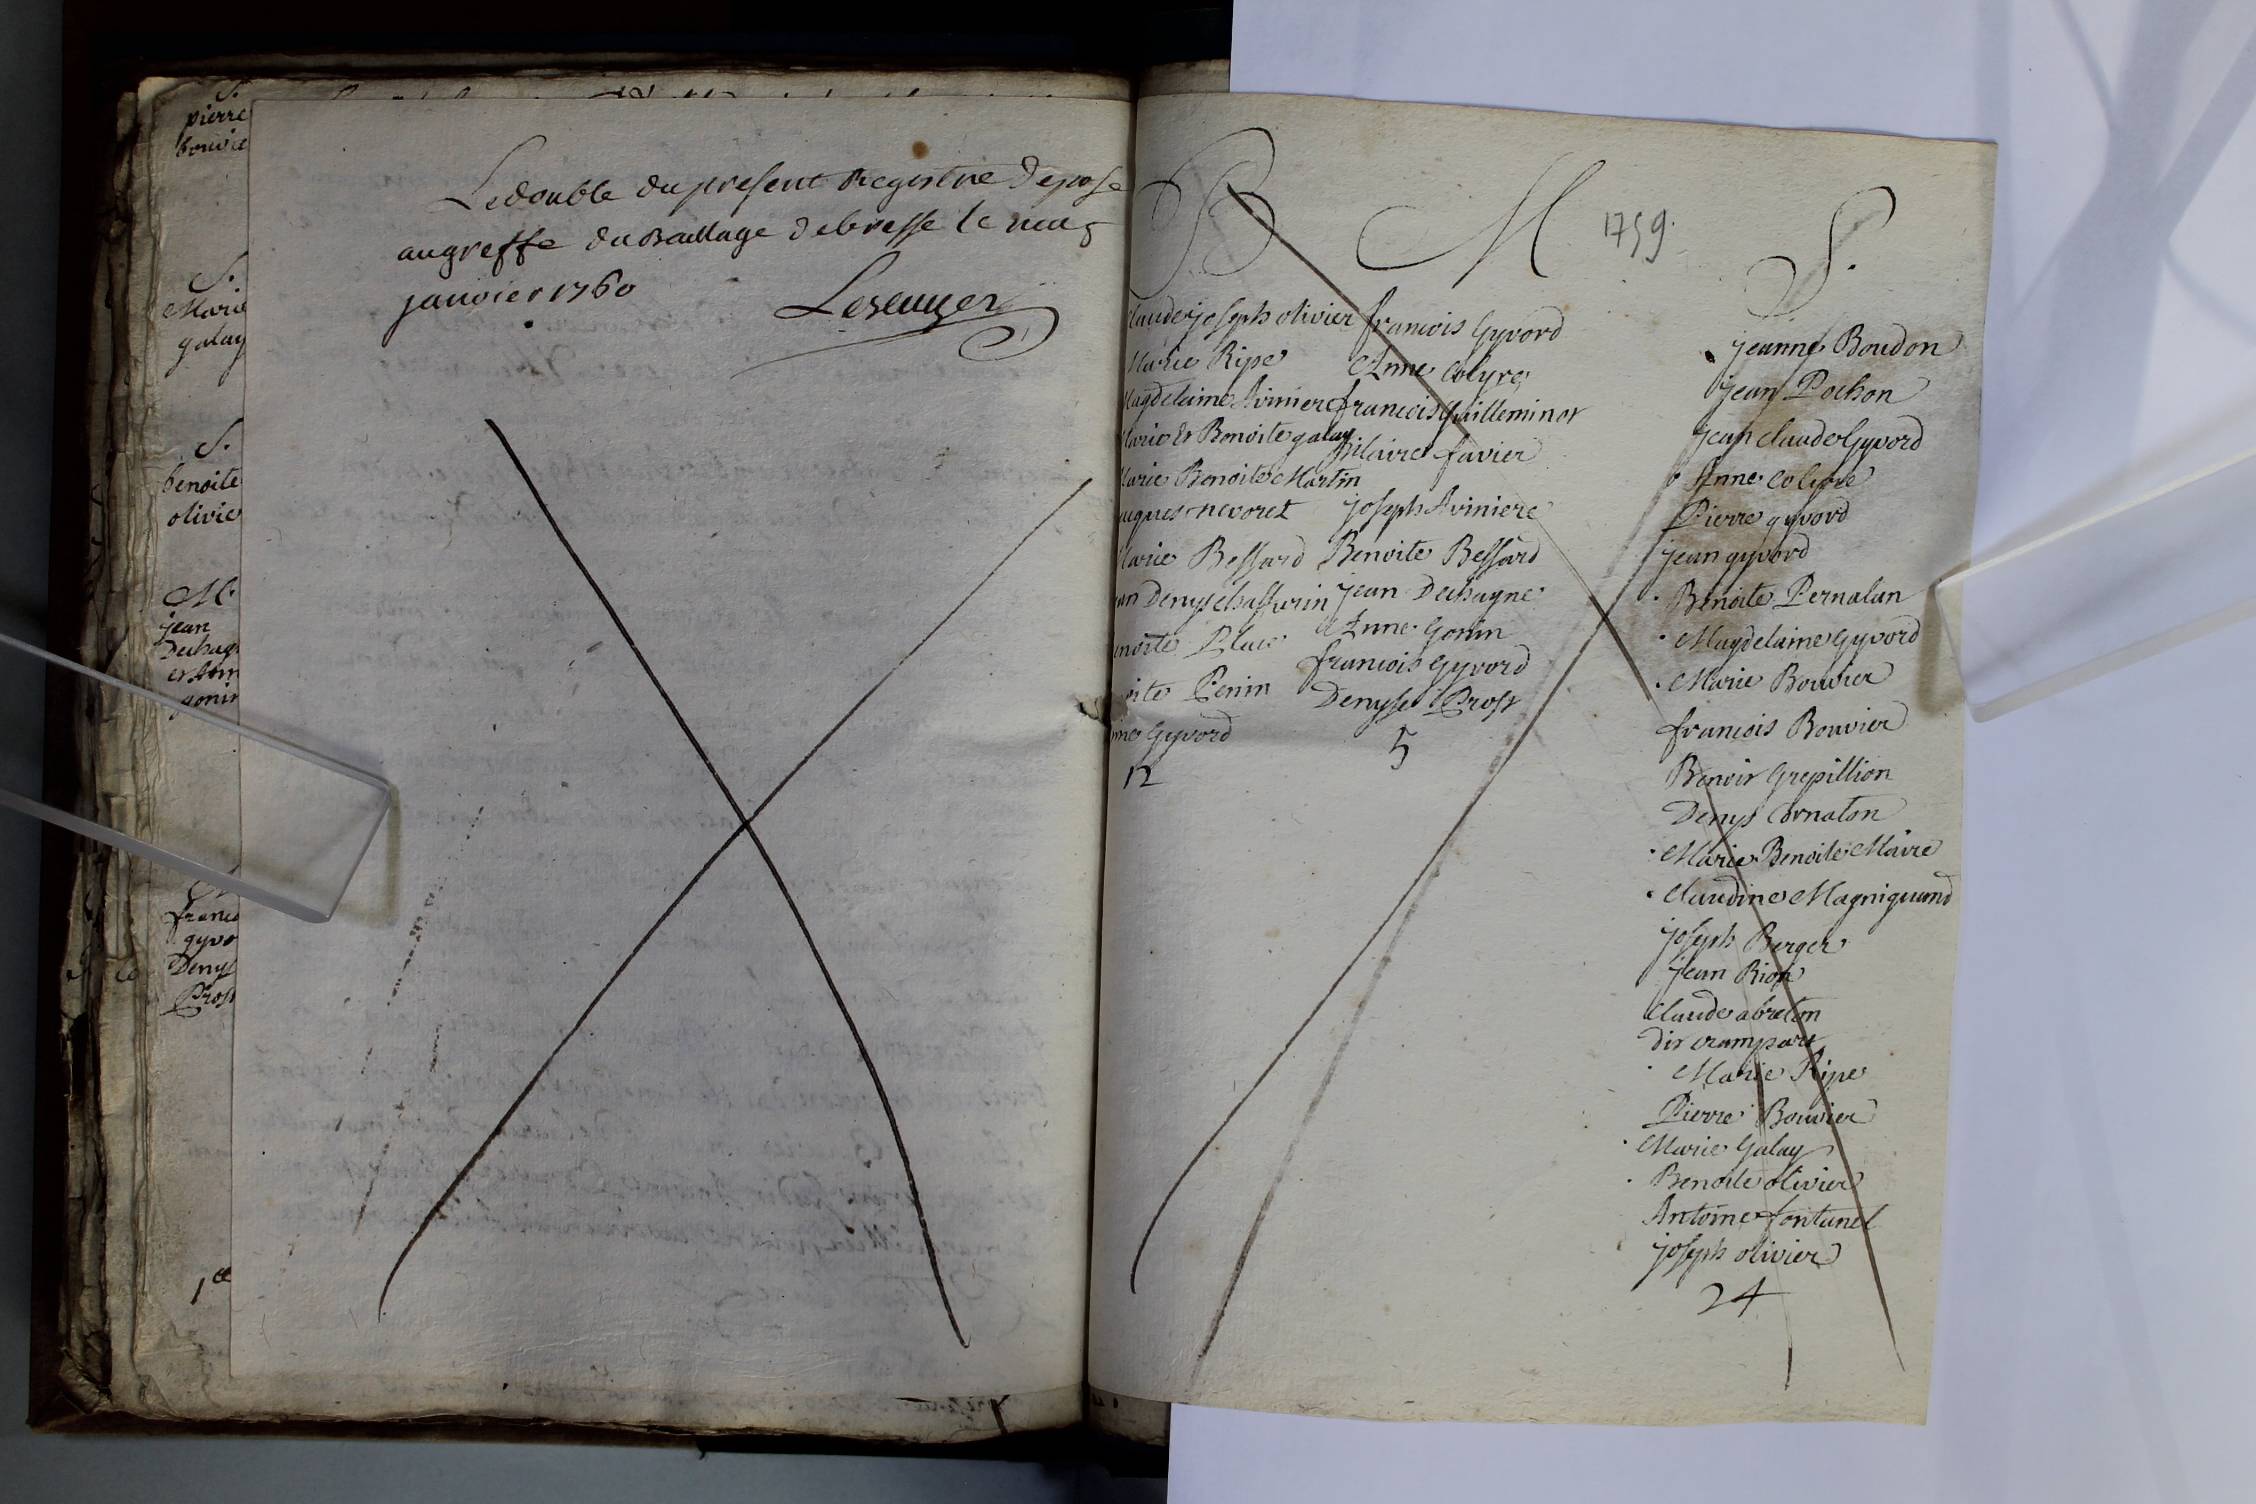 S.
pierre
bouvie
S.
Marie
galay
S.
benoite
olivie
M.
jean
Dechag
et Ann
gonin
franco
gyvo
Denys
Prost
Le double du present Registre depose
au greffe du Bailliage de bresse le
janvier 1760
B M 1759. S.
laude joseph olivier
Marie Ripe
Magdelaine Aviniere
Marie Et Benoite galay
Marie Benoite Martin
acques nevoret
Marie Bessard
an Denys chassurin
enoite Place
oite Penin
ine Gyvord
12
francois Gyvord
Anne Colyre
francois Guilleminot
hilaire favier
joseph Aviniere
Benoite Bessard
jean Dechagne
Anne Gonin
francois Gyvord
Denyse Prost
5
jeanne Boudon
jean Pochon
jean claude Gyvord
Anne Colyre
Pierre gyvord
jean gyvord
Benoite Pernalan
Magdelaine Gyvord
Marie Bouvier
francois Bouvier
Benoit Grepillion
Denys Cornaton
Marie Benoite Maire
Claudine Magnigurand
joseph Berger
jean Rion
Claude abreton
dit crampart
Marie Ripe
Pierre Bouvier
Marie Galay
Benoite olivier
Antoine fontanel
joseph olivier
24